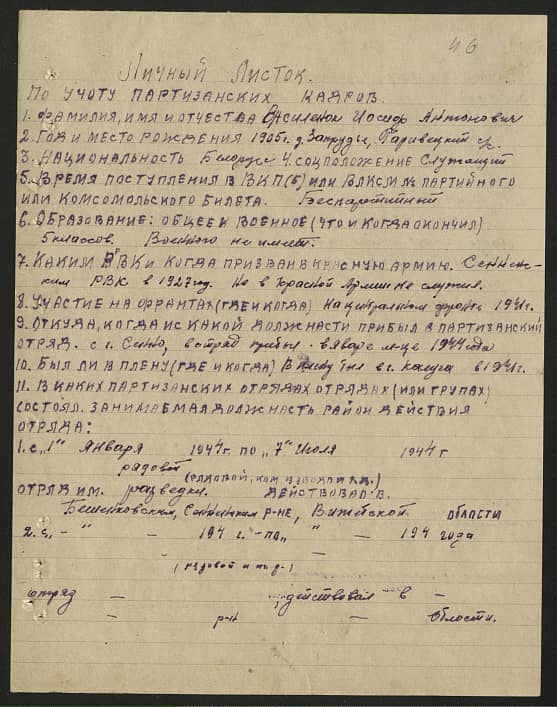 46
Личный Листок.
По учоту партизанских кадров.
1. Фамилия, имя и отчества Иосиф Антонович
2. Год и место рождения 1905 г. д. Запруды,
3. Национальность Белорус 4. соцположение Служащий
5. Время поступления в ВКП(б) или ВЛКСМ № партийного
или комсомольского билета. Беспартийный
6. Образование: общее и военное (что и когда окончил)
5 классов. Военного не имеет.
7. Каким РВК и когда призван в красную армию. Сеннен-
ским РВК в 1927 год. Но в красной Армии не служил.
8. Участие на франтах (где и когда) На центральном фронте 1941 г.
9. Откуда, когда и с какой должности прибыл в партизанский
отряд. с г. Сенно, в отряд прибыл в январе м-це 1944 года
10. Был ли в плену (где и когда) В плену был в г. Калуга в 1941 г.
11. В каких партизанских отрядах отрядах (или групах)
состоял. Занимаемая должность район действия
отряда:
1. с „1" Января 1944 г. по „7" Июля 1944 г
рядовой
(рядовой, ком. взвода и т.д.)
отряд им. разведки. действовал в.
Бешенковским, Сенненским р-не, Витебской области
2. с „ - " - 194 г. - по „ " - 194 года
(рядовой и т. д.)
отряд - действовал в -
- р-н - области.